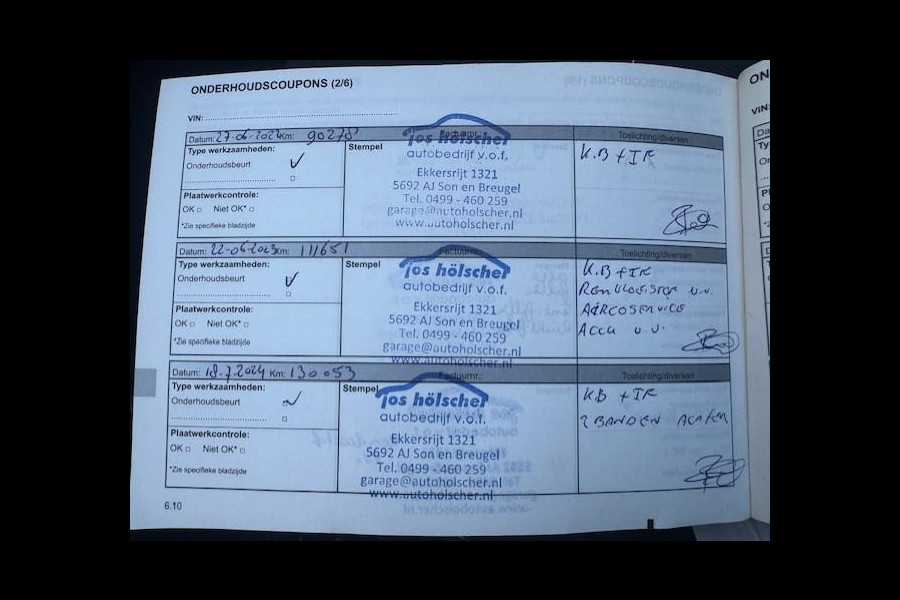 ONDERHOUDSCOUPONS (2/6)
VIN:
Datum: 27-06-2022 Km: 90278
Factuurnr.:
Toelichting/diversen
Type werkzaamheden:
Onderhoudsbeurt
Plaatwerkcontrole:
OK Niet OK*
*Zie specifieke bladzijde
Stempel
jos hölscher
autobedrijf v.o.f.
Ekkersrijt 1321
5692 AJ Son en Breugel
Tel. 0499 - 460 259
garage@autoholscher.nl
www.autoholscher.nl
K.B + IR
Datum: 22-06-2023 Km: 111651
Factuurnr.:
Toelichting/diversen
Type werkzaamheden:
Onderhoudsbeurt
Plaatwerkcontrole:
OK Niet OK*
*Zie specifieke bladzijde
Stempel
jos hölscher
autobedrijf v.o.f.
Ekkersrijt 1321
5692 AJ Son en Breugel
Tel. 0499 - 460 259
garage@autoholscher.nl
www.autoholscher.nl
K.B + IR
REMVLOEISTOF v.v.
AIRCOSERVICE
ACCU v.v.
Datum: 18-7-2024 Km: 130053
Factuurnr.:
Toelichting/diversen
Type werkzaamheden:
Onderhoudsbeurt
Plaatwerkcontrole:
OK Niet OK*
*Zie specifieke bladzijde
Stempel
jos hölscher
autobedrijf v.o.f.
Ekkersrijt 1321
5692 AJ Son en Breugel
Tel. 0499 - 460 259
garage@autoholscher.nl
www.autoholscher.nl
K.B + IR
2 BANDEN ACHTER
6.10
ON
VIN: